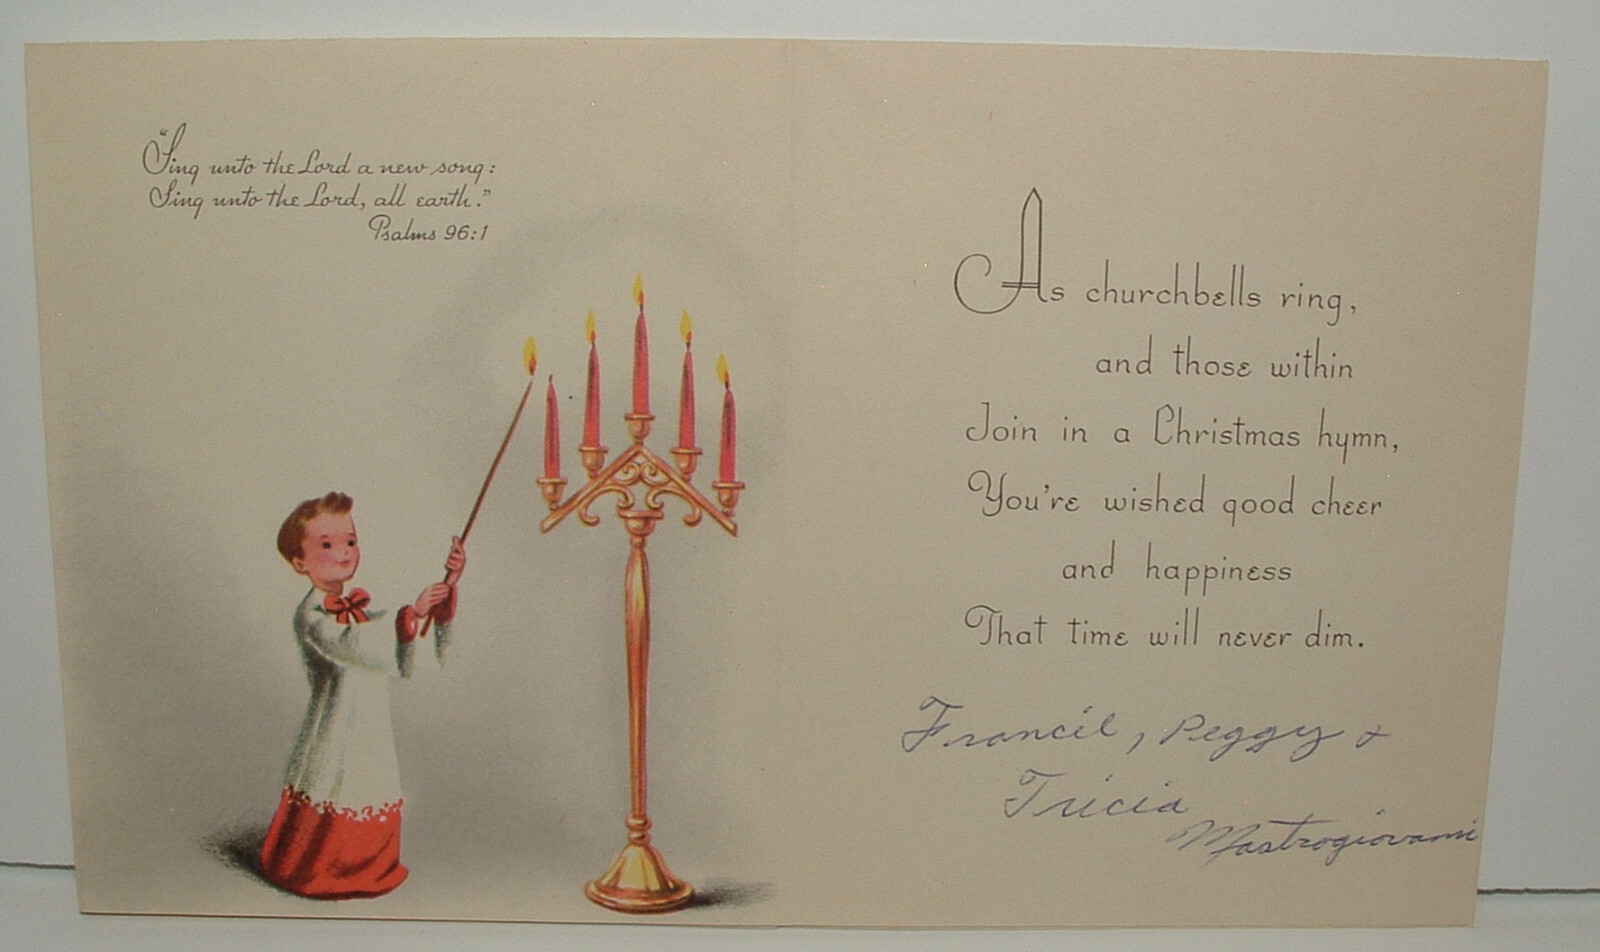 “Sing unto the Lord a new song:
Sing unto the Lord, all earth.”
Psalms 96:1
As churchbells ring,
and those within
Join in a Christmas hymn,
You're wished good cheer
and happiness
That time will never dim.
Francil, Peggy &
Tricia
Mastrogiovanni